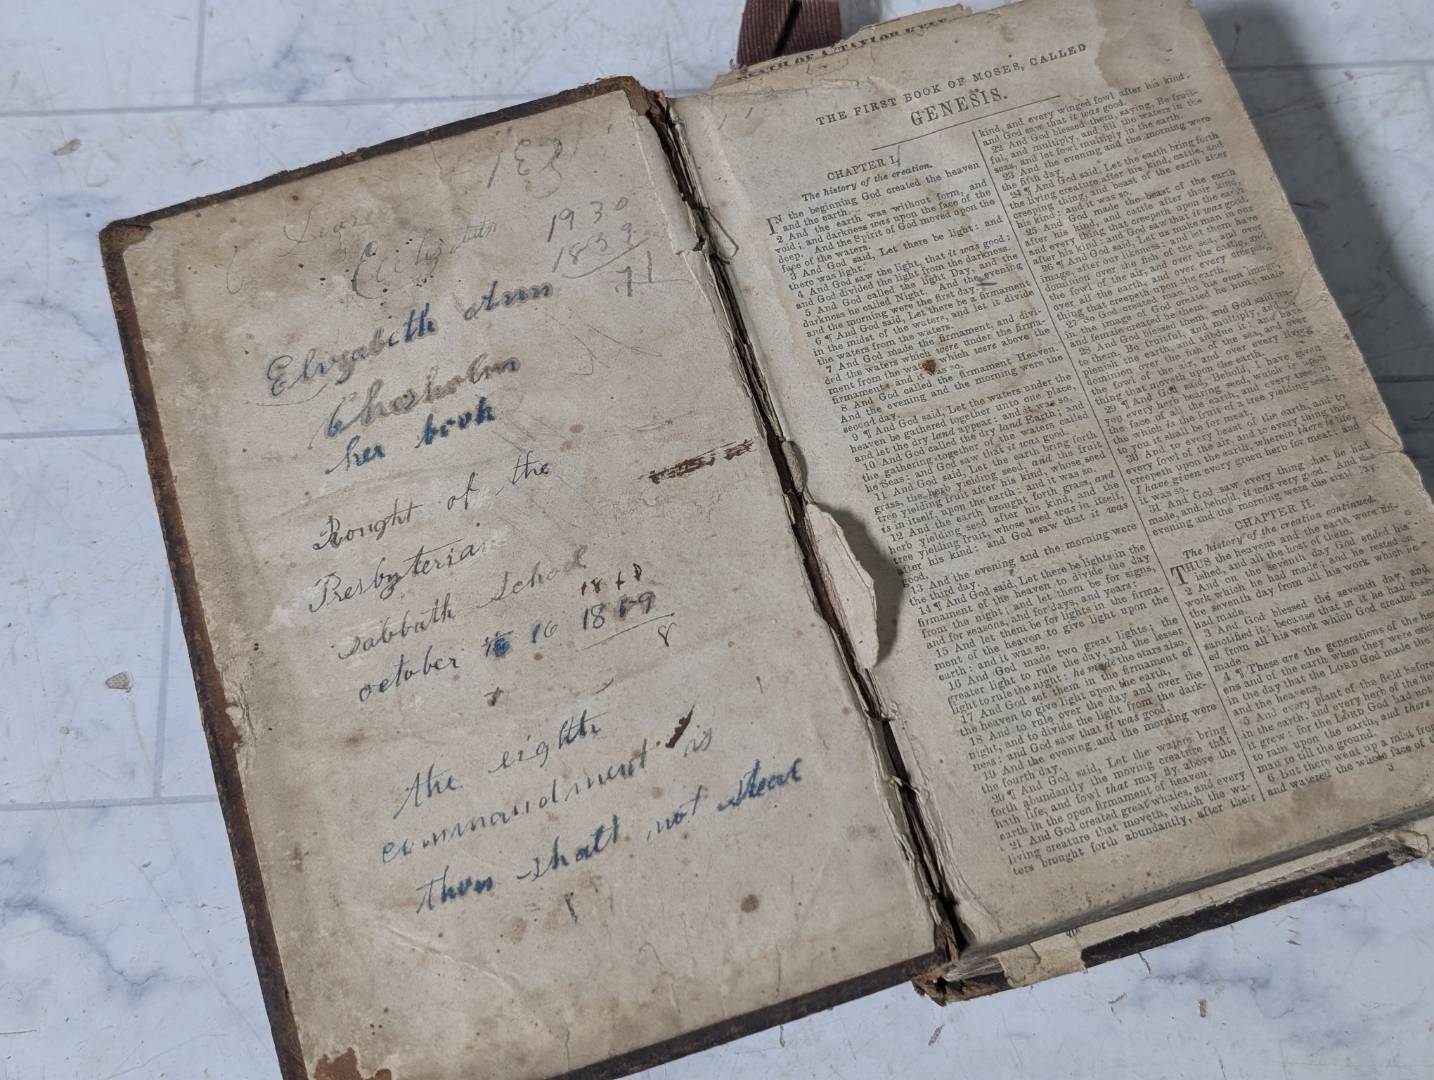 183
Elizabeth
1930
1859
71
Elizabeth Ann
Chesholm
her book
Bought of the
Presbyterian
sabbath School
october 16 1859
18
8
the eighth
commandment is
thou shalt not steal
THE FIRST BOOK OF MOSES, CALLED
GENESIS.
CHAPTER I.
The history of the creation.
IN the beginning God created the heaven
and the earth.
2 And the earth was without form, and
void; and darkness was upon the face of the
deep. And the Spirit of God moved upon the
face of the waters.
3 And God said, Let there be light: and
there was light.
4 And God saw the light, that it was good:
and God divided the light from the darkness.
5 And God called the light Day, and the
darkness he called Night. And the evening
and the morning were the first day.
6 ¶ And God said, Let there be a firmament
in the midst of the waters, and let it divide
the waters from the waters.
7 And God made the firmament, and divi-
ded the waters which were under the firma-
ment from the waters which were above the
firmament: and it was so.
8 And God called the firmament Heaven.
And the evening and the morning were the
second day.
9 ¶ And God said, Let the waters under the
heaven be gathered together unto one place,
and let the dry land appear: and it was so.
10 And God called the dry land Earth; and
the gathering together of the waters called
he Seas: and God saw that it was good.
11 And God said, Let the earth bring forth
grass, the herb yielding seed, and the fruit
tree yielding fruit after his kind, whose seed
is in itself, upon the earth: and it was so.
12 And the earth brought forth grass, and
herb yielding seed after his kind, and the
tree yielding fruit, whose seed was in itself,
after his kind: and God saw that it was
good.
13 And the evening and the morning were
the third day.
14 ¶ And God said, Let there be lights in the
firmament of the heaven to divide the day
from the night; and let them be for signs,
and for seasons, and for days, and years:
15 And let them be for lights in the firma-
ment of the heaven to give light upon the
earth: and it was so.
16 And God made two great lights; the
greater light to rule the day, and the lesser
light to rule the night: he made the stars also.
17 And God set them in the firmament of
the heaven to give light upon the earth,
18 And to rule over the day and over the
night, and to divide the light from the dark-
ness: and God saw that it was good.
19 And the evening and the morning were
the fourth day.
20 ¶ And God said, Let the waters bring
forth abundantly the moving creature that
hath life, and fowl that may fly above the
earth in the open firmament of heaven.
21 And God created great whales, and every
living creature that moveth, which the wa-
ters brought forth abundantly, after their
kind, and every winged fowl after his kind:
and God saw that it was good.
22 And God blessed them, saying, Be fruit-
ful, and multiply, and fill the waters in the
seas, and let fowl multiply in the earth.
23 And the evening and the morning were
the fifth day.
24 ¶ And God said, Let the earth bring forth
the living creature after his kind, cattle, and
creeping thing, and beast of the earth after
his kind: and it was so.
25 And God made the beast of the earth
after his kind, and cattle after their kind,
and every thing that creepeth upon the earth
after his kind: and God saw that it was good.
26 ¶ And God said, Let us make man in our
image, after our likeness: and let them have
dominion over the fish of the sea, and over
the fowl of the air, and over the cattle, and
over all the earth, and over every creeping
thing that creepeth upon the earth.
27 So God created man in his own image,
in the image of God created he him; male
and female created he them.
28 And God blessed them, and God said unto
them, Be fruitful, and multiply, and re-
plenish the earth, and subdue it: and have
dominion over the fish of the sea, and over
the fowl of the air, and over every
thing that moveth upon the earth.
29 ¶ And God said, Behold, I have given
you every herb bearing seed, which is upon
the face of all the earth, and every tree, in
the which is the fruit of a tree yielding seed;
to you it shall be for meat.
30 And to every beast of the earth, and to
every fowl of the air, and to every thing that
creepeth upon the earth, wherein there is life,
I have given every green herb for meat: and
it was so.
31 And God saw every thing that he had
made, and behold, it was very good. And the
evening and the morning were the sixth day.
CHAPTER II.
The history of the creation continued.
THUS the heavens and the earth were fin-
ished, and all the host of them.
2 And on the seventh day God ended his
work which he had made; and he rested on
the seventh day from all his work which he
had made.
3 And God blessed the seventh day, and
sanctified it: because that in it he had rest-
ed from all his work which God created and
made.
4 ¶ These are the generations of the heav-
ens and of the earth when they were
in the day that the LORD God made the
and the heavens,
5 And every plant of the field before
in the earth, and every herb of the field
it grew: for the LORD God had not
to rain upon the earth, and there
man to till the ground.
6 But there went up a mist from
and watered the whole face of
3